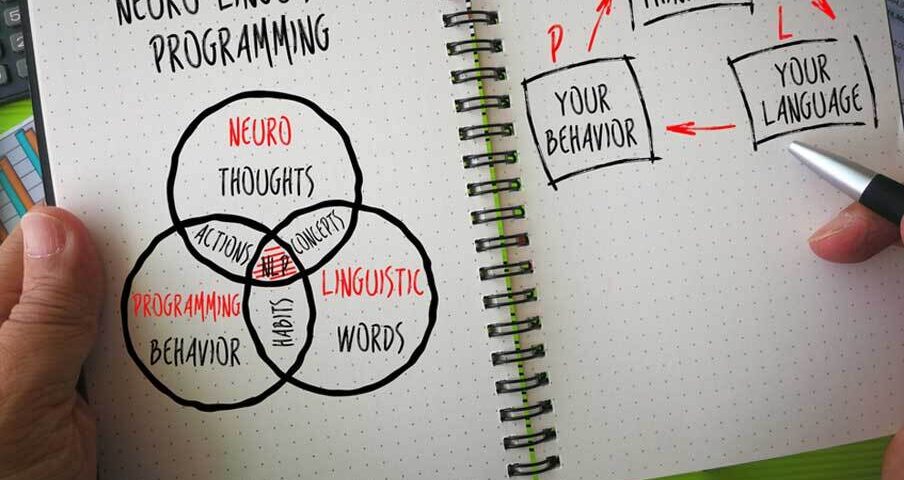 PROGRAMMING
NEURO
THOUGHTS
ACTIONS
CONCEPTS
NLP
PROGRAMMING
BEHAVIOR
HABITS
LINGUISTIC
WORDS
P
L
YOUR
BEHAVIOR
YOUR
LANGUAGE